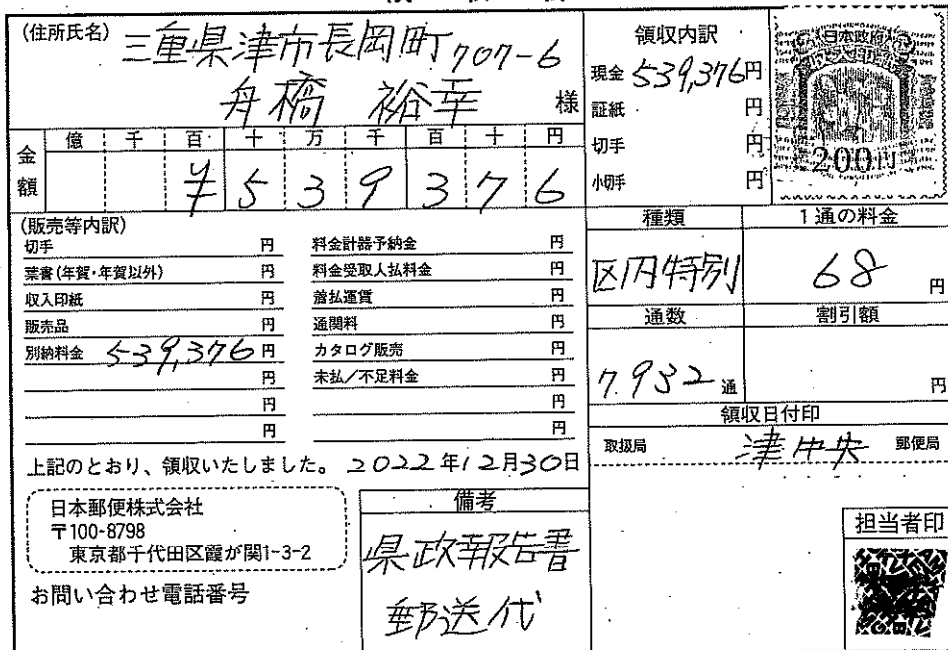 (住所氏名) 三重県津市長岡町707-6
舟橋 裕幸 様
金額
億 千 百 十 万 千 百 十 円
¥539376
領収内訳
現金 539,376円
証紙 円
切手 円
小切手 円
日本政府
収入印紙
200円
(販売等内訳)
切手 円
葉書(年賀・年賀以外) 円
収入印紙 円
販売品 円
別納料金 539,376円
円
円
円
料金計器予納金 円
料金受取人払料金 円
着払運賃 円
通関料 円
カタログ販売 円
未払/不足料金 円
円
円
種類
区内特別
1通の料金
68円
通数
7.932通
割引額
円
領収日付印
取扱局 津中央 郵便局
上記のとおり、領収いたしました。 2022年12月30日
日本郵便株式会社
〒100-8798
東京都千代田区霞が関1-3-2
お問い合わせ電話番号
備考
県政報告書
郵送代
担当者印